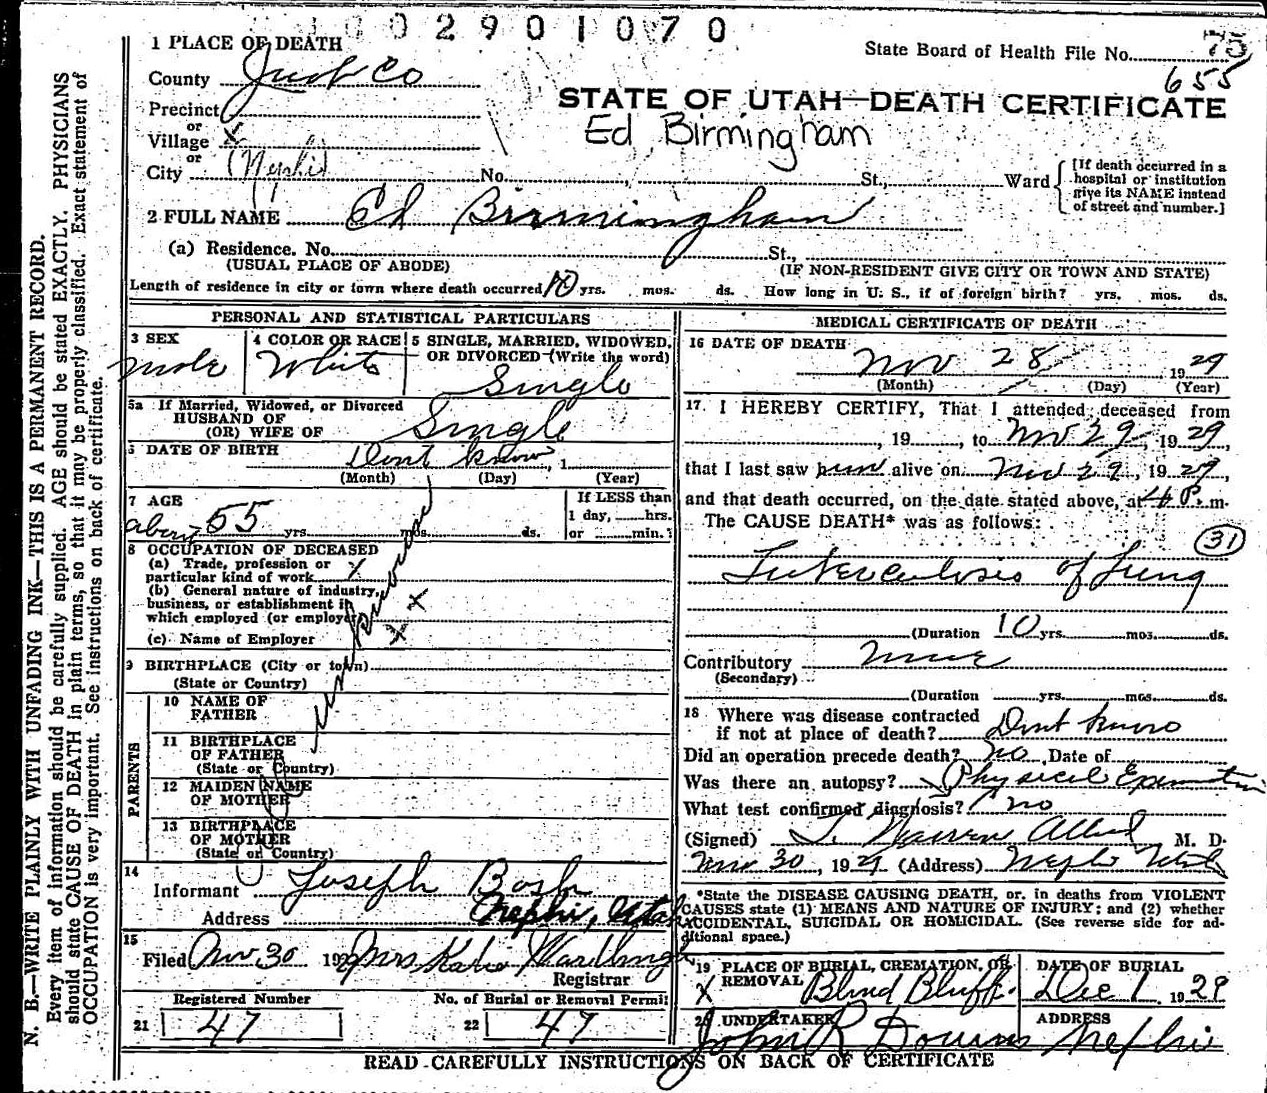 002901070
1 PLACE OF DEATH
State Board of Health File No. 75
655
County Juab Co
STATE OF UTAH—DEATH CERTIFICATE
Precinct
Ed Birmingham
or
Village X
or
City (Nephi) No. , St., Ward
[If death occurred in a
hospital or institution
give its NAME instead
of street and number.]
2 FULL NAME Ed Birmingham
(a) Residence. No. St.,
(USUAL PLACE OF ABODE) (IF NON-RESIDENT GIVE CITY OR TOWN AND STATE)
Length of residence in city or town where death occurred 10 yrs. mos. ds. How long in U. S., if of foreign birth? yrs. mos. ds.
PERSONAL AND STATISTICAL PARTICULARS
3 SEX
male
4 COLOR OR RACE
White
5 SINGLE, MARRIED, WIDOWED,
OR DIVORCED (Write the word)
Single
5a If Married, Widowed, or Divorced
HUSBAND OF
(OR) WIFE OF Single
6 DATE OF BIRTH Dont know, 1
(Month) (Day) (Year)
7 AGE
about 55 yrs. mos. ds.
If LESS than
1 day, hrs.
or min.?
8 OCCUPATION OF DECEASED
(a) Trade, profession or
particular kind of work
(b) General nature of industry,
business, or establishment in
which employed (or employer)
X X
(c) Name of Employer
9 BIRTHPLACE (City or town)
(State or Country)
PARENTS
10 NAME OF
FATHER
11 BIRTHPLACE
OF FATHER
(State or Country)
12 MAIDEN NAME
OF MOTHER
13 BIRTHPLACE
OF MOTHER
(State or Country)
14
Informant Joseph Bosh
Address Nephi, Utah
15
Filed Nov. 30 1929 Mrs Katie
Registrar
Registered Number No. of Burial or Removal Permit
21 47 22 47
MEDICAL CERTIFICATE OF DEATH
16 DATE OF DEATH
Nov 28 1929
(Month) (Day) (Year)
17. I HEREBY CERTIFY, That I attended deceased from
, 19 , to Nov 29, 1929,
that I last saw him alive on Nov 29, 1929,
and that death occurred, on the date stated above, at 4 P. m.
The CAUSE DEATH* was as follows:
31
Tuberculosis of Lung
(Duration 10 yrs. mos. ds.
Contributory none
(Secondary)
(Duration yrs. mos. ds.
18 Where was disease contracted
if not at place of death? Dont know
Did an operation precede death? no Date of
Was there an autopsy? Physical Examination
What test confirmed diagnosis? no
(Signed) Warren M. D.
Nov 30, 1929 (Address) Nephi Utah
*State the DISEASE CAUSING DEATH, or, in deaths from VIOLENT
CAUSES state (1) MEANS AND NATURE OF INJURY; and (2) whether
ACCIDENTAL, SUICIDAL OR HOMICIDAL. (See reverse side for ad-
ditional space.)
19 PLACE OF BURIAL, CREMATION, OR
REMOVAL
X Blind Bluff.
DATE OF BURIAL
Dec 1, 1929
20 UNDERTAKER
John R Downs
ADDRESS
Nephi
READ CAREFULLY INSTRUCTIONS ON BACK OF CERTIFICATE
N. B.—WRITE PLAINLY WITH UNFADING INK—THIS IS A PERMANENT RECORD.
Every item of information should be carefully supplied. AGE should be stated EXACTLY. PHYSICIANS
should state CAUSE OF DEATH in plain terms, so that it may be properly classified. Exact statement of
OCCUPATION is very important. See instructions on back of certificate.